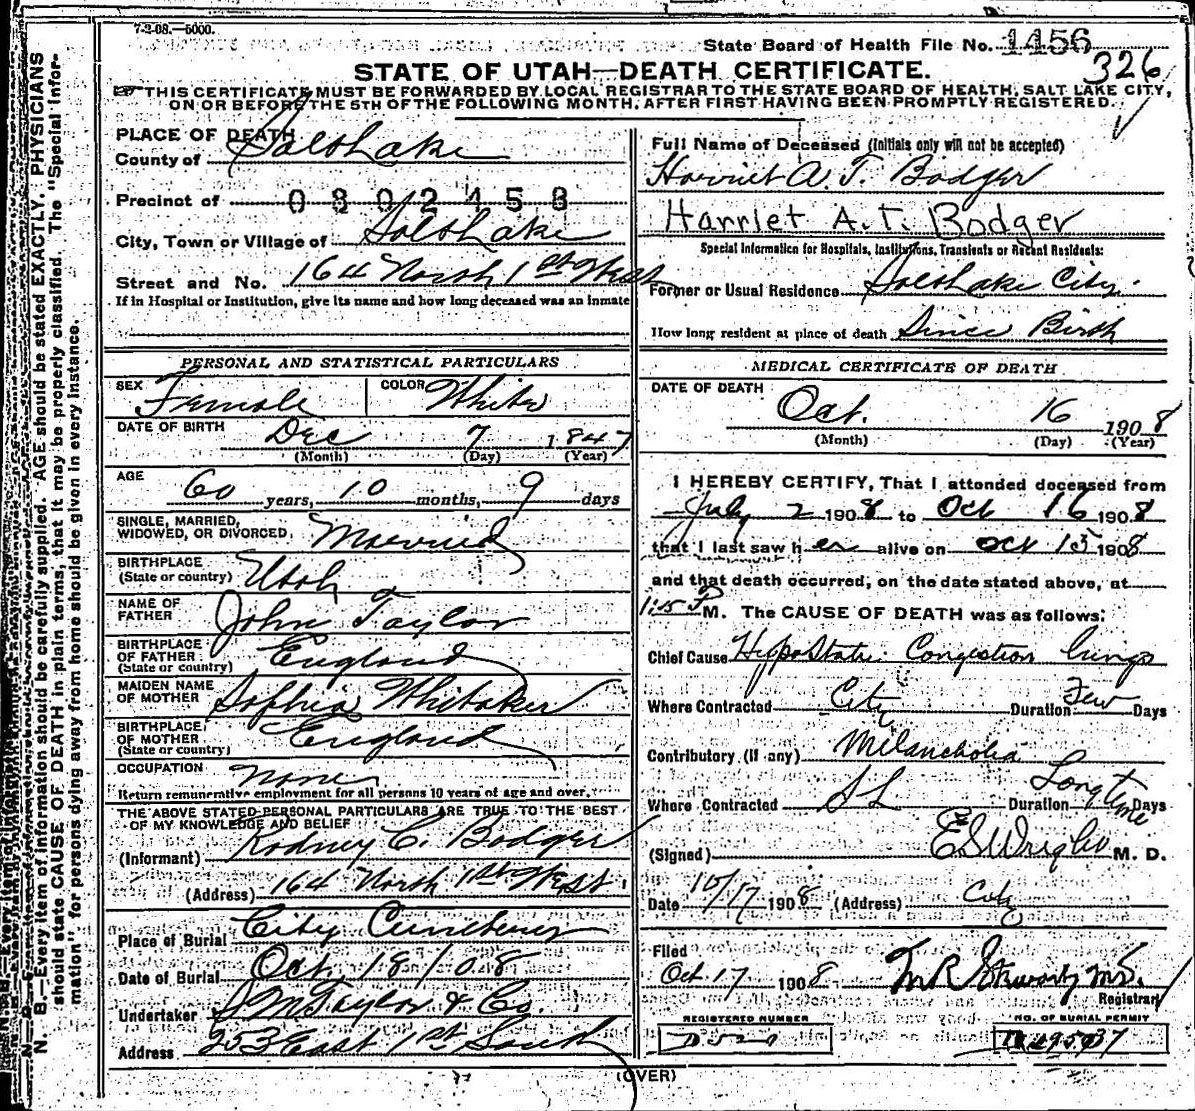 7-2-08.—5000.
State Board of Health File No. 1456
326
STATE OF UTAH—DEATH CERTIFICATE.
THIS CERTIFICATE MUST BE FORWARDED BY LOCAL REGISTRAR TO THE STATE BOARD OF HEALTH, SALT LAKE CITY,
ON OR BEFORE THE 5TH OF THE FOLLOWING MONTH, AFTER FIRST HAVING BEEN PROMPTLY REGISTERED.
PLACE OF DEATH
County of Salt Lake
Precinct of 0302458
City, Town or Village of Salt Lake
Street and No. 164 North 1st West
If in Hospital or Institution, give its name and how long deceased was an inmate
Full Name of Deceased (Initials only will not be accepted)
Harriet A. T. Badger
Harriet A.T. Badger
Special Information for Hospitals, Institutions, Transients or Recent Residents:
Former or Usual Residence Salt Lake City.
How long resident at place of death Since Birth
PERSONAL AND STATISTICAL PARTICULARS
SEX Female COLOR White
DATE OF BIRTH Dec 7 1847
(Month) (Day) (Year)
AGE 60 years, 10 months, 9 days
SINGLE, MARRIED,
WIDOWED, OR DIVORCED Married
BIRTHPLACE
(State or country) Utah
NAME OF
FATHER John Taylor
BIRTHPLACE
OF FATHER
(State or country) England
MAIDEN NAME
OF MOTHER Sophia Whitaker
BIRTHPLACE
OF MOTHER
(State or country) England
OCCUPATION None
Return remunerative employment for all persons 10 years of age and over.
THE ABOVE STATED PERSONAL PARTICULARS ARE TRUE TO THE BEST
OF MY KNOWLEDGE AND BELIEF
(Informant) Rodney C. Badger
(Address) 164 North 1st West.
Place of Burial City Cemetery
Date of Burial Oct. 18/08
Undertaker S M Taylor & Co.
Address 253 East 1st South
MEDICAL CERTIFICATE OF DEATH
DATE OF DEATH
Oct. 16 1908
(Month) (Day) (Year)
I HEREBY CERTIFY, That I attended deceased from
July 2 1908 to Oct 16 1908
that I last saw her alive on Oct 15 1908
and that death occurred, on the date stated above, at
1:15 P M. The CAUSE OF DEATH was as follows:
Chief Cause Hypostatic Congestion lungs
Where Contracted City Duration Few Days
Contributory (if any) Melancholia
Where Contracted SL Duration Long time Days
(Signed) M. D.
Date 10/17 1908 (Address) City
Filed
Oct 17 1908
Registrar
REGISTERED NUMBER
NO. OF BURIAL PERMIT
(OVER)
N. B.—Every item of information should be carefully supplied. AGE should be stated EXACTLY. PHYSICIANS
should state CAUSE OF DEATH in plain terms, that it may be properly classified. The "Special Infor-
mation" for persons dying away from home should be given in every instance.